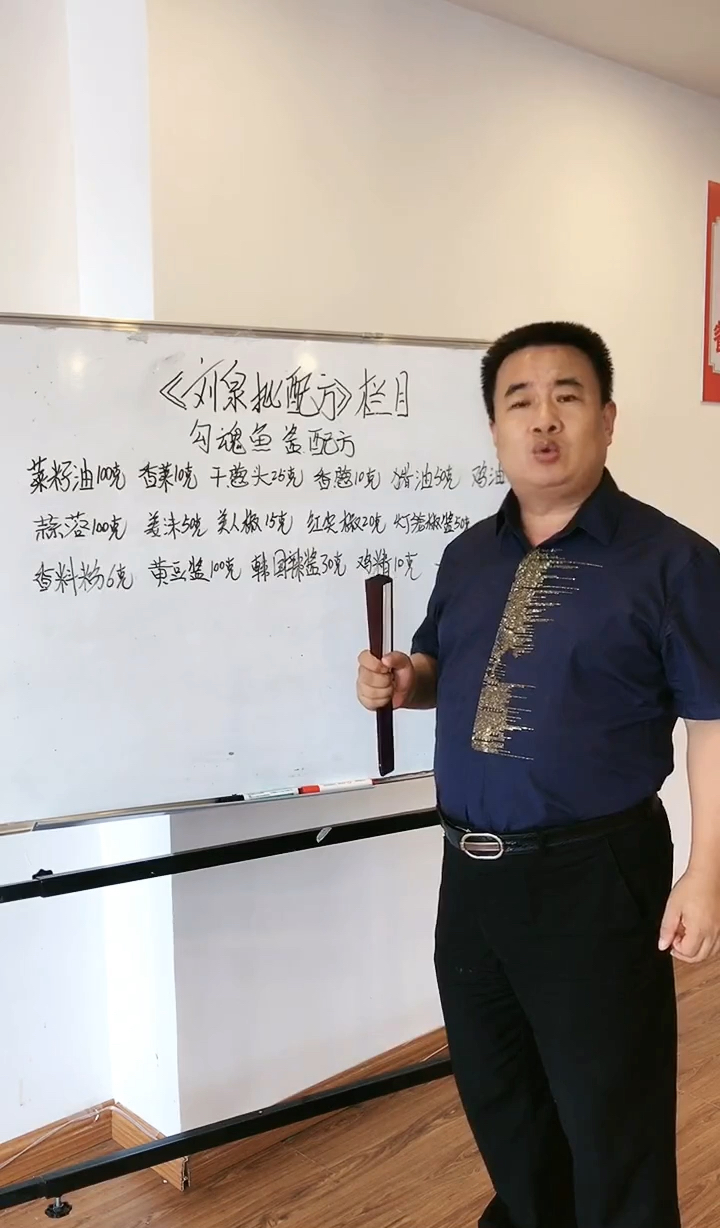 《刘泉批配方》栏目
勾魂鱼酱配方
菜籽油100克 香菜10克 干葱头25克 香葱10克 猪油50克 鸡油
蒜蓉100克 姜沫50克 美人椒15克 红尖椒20克 灯笼椒酱50克
香料粉6克 黄豆酱100克 韩国辣酱30克 鸡精10克